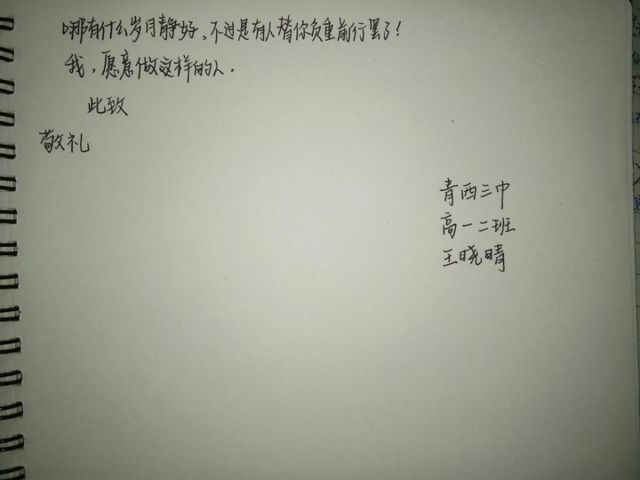 哪有什么岁月静好，不过是有人替你负重前行罢了！
我，愿意做这样的人．
此致
敬礼
青西三中
高一二班
王晓晴